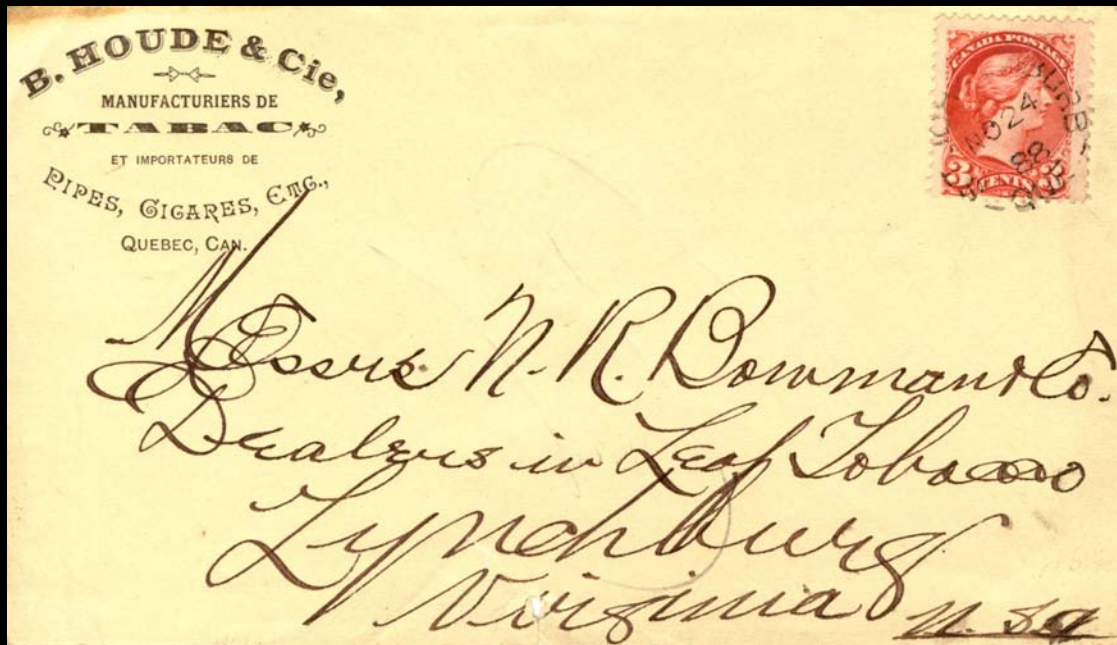 B. HOUDE & Cie,
MANUFACTURIERS DE
TABAC
ET IMPORTATEURS DE
PIPES, CIGARES, ETC.,
QUEBEC, CAN.
CANADA POSTAGE
3 CENTS 3
NO 24
88
QUE
Messrs N. R. Bowman & Co.
Dealers in Leaf Tobacco
Lynchburg
Virginia U.S.A